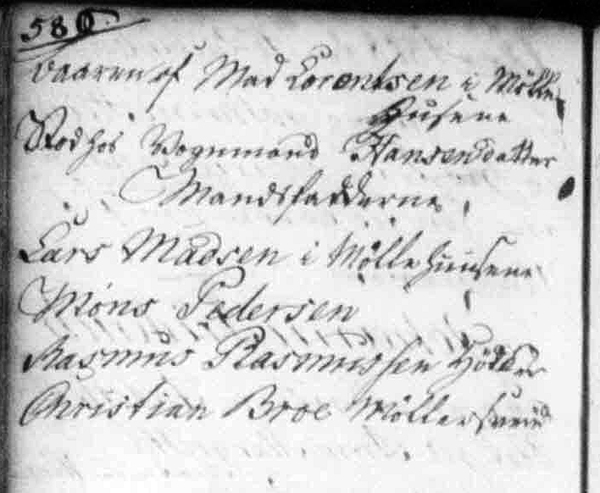 580.
baaren af Mad Lorentsen i Mölle
Husene
Stod hos Vognmand Hansens datter
Mandsfadderne
Lars Madsen i Möllehuusene
Möns Pedersen
Rasmus Rasmussen Hödker
Christian Broe Möllersvend